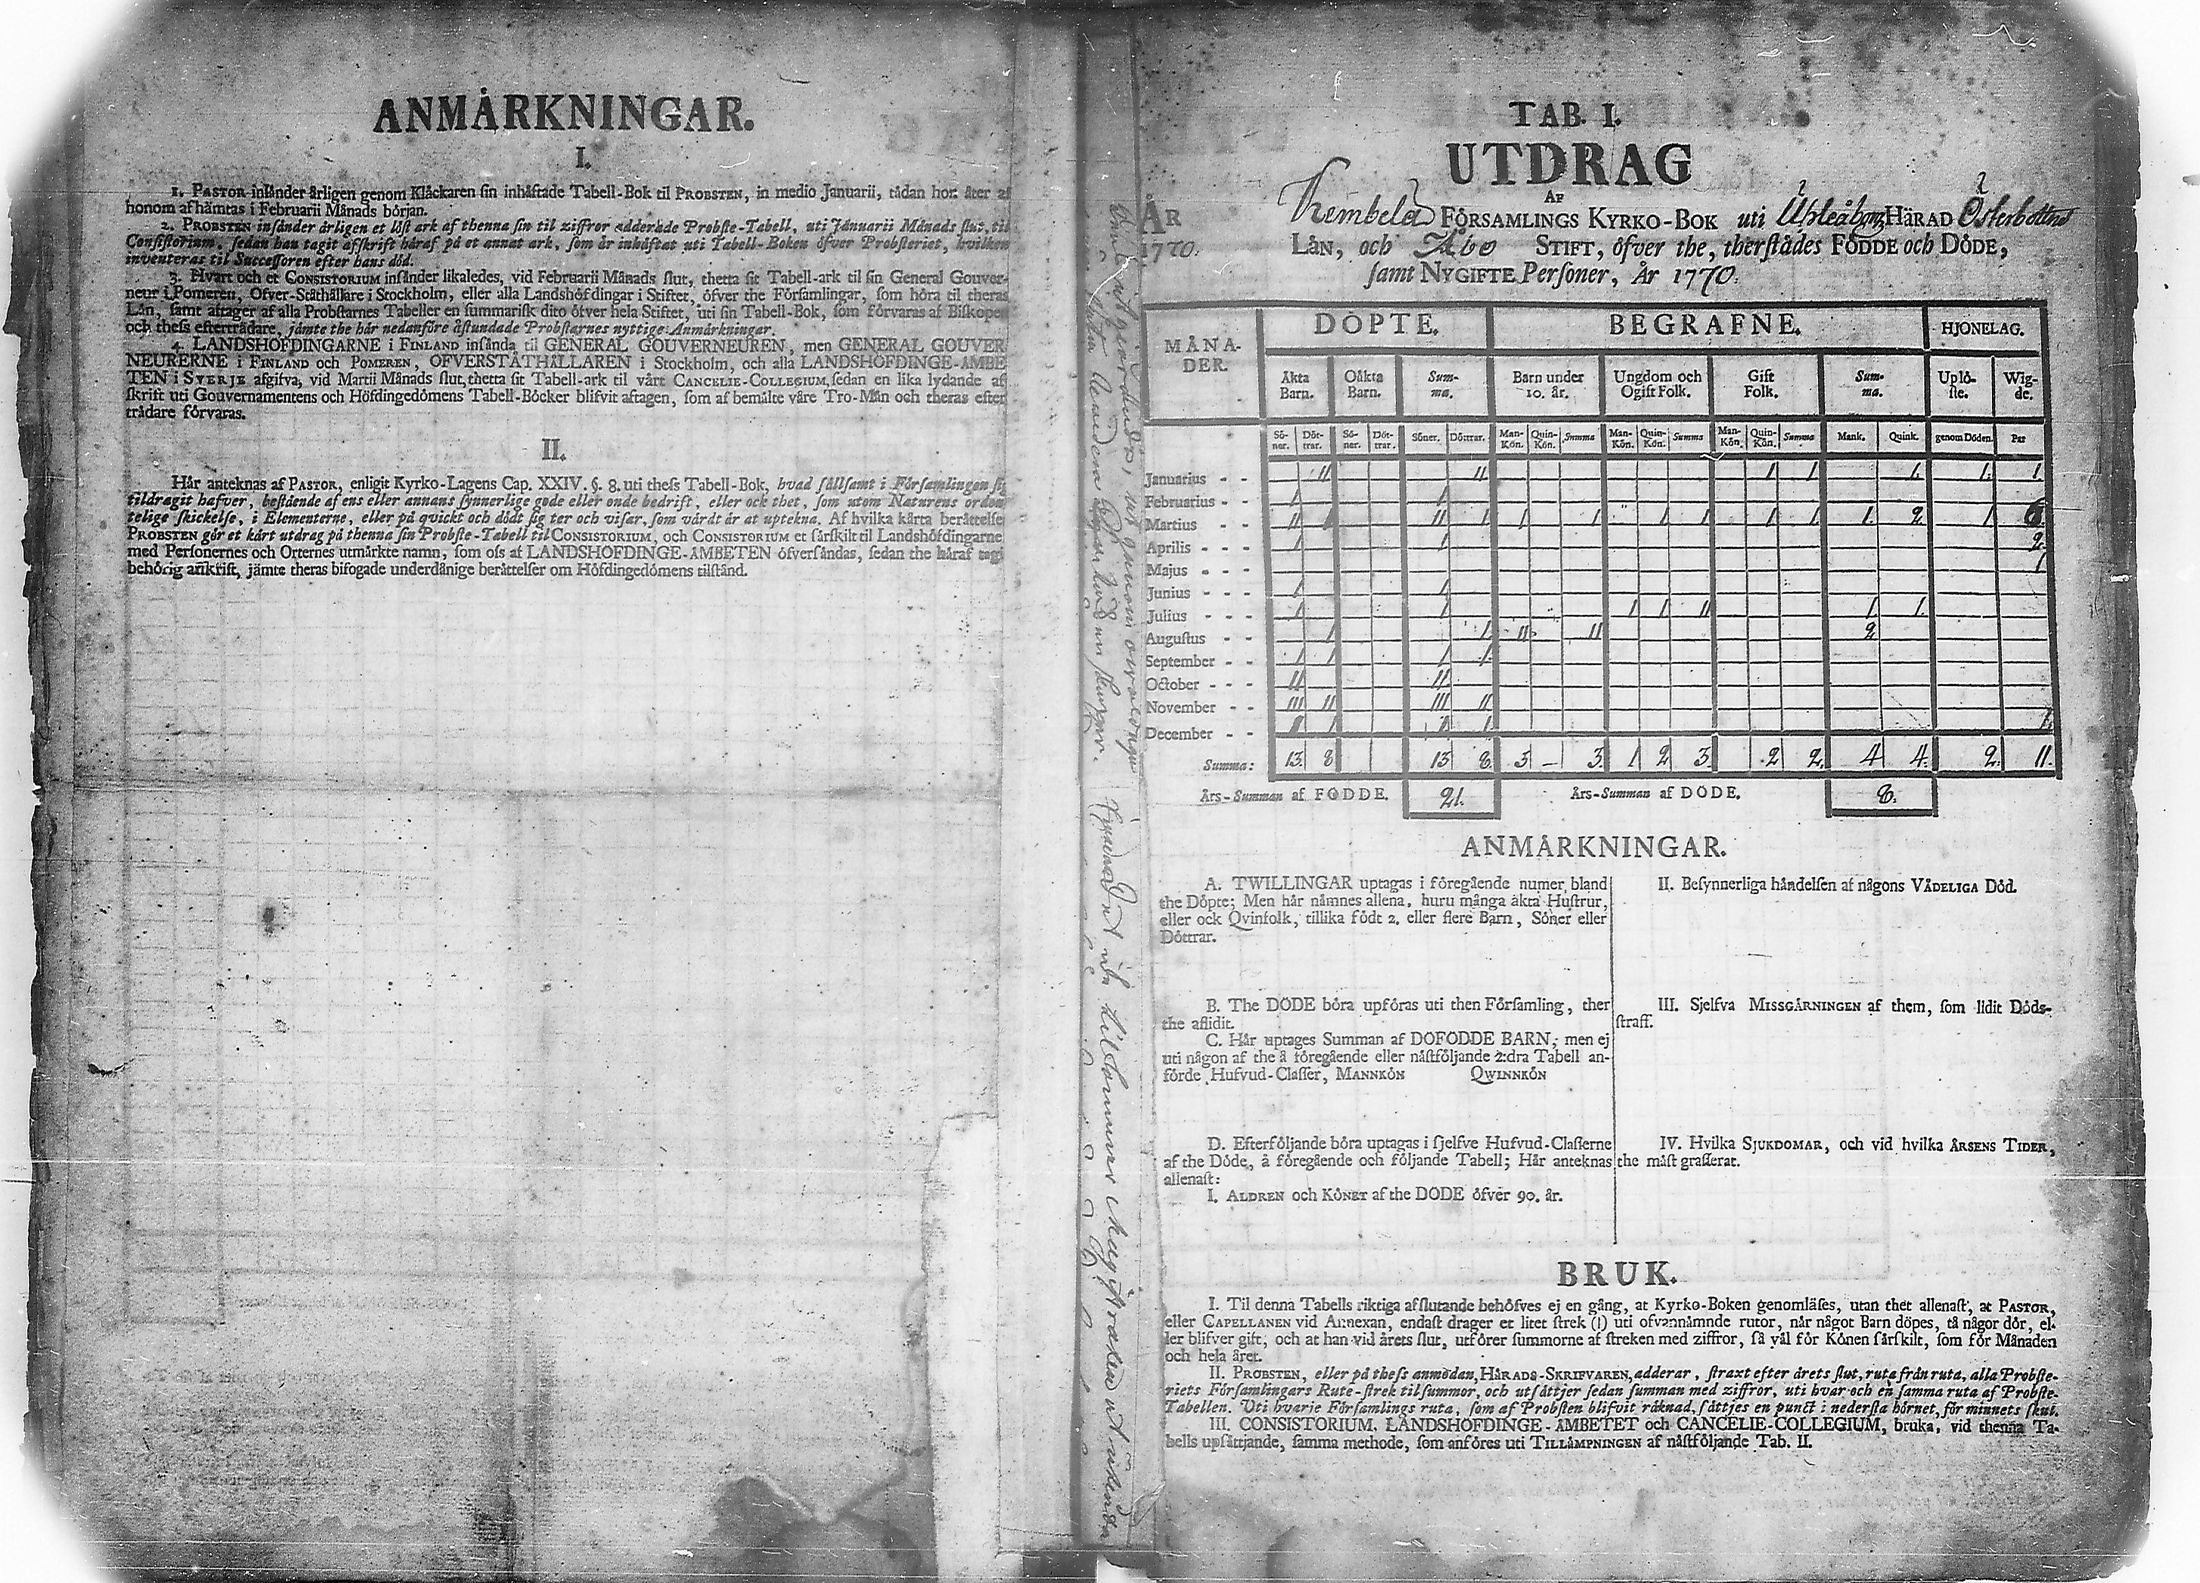 ANMÅRKNINGAR.
I.
1. PASTOR inlånder årligen genom Klåckaren sin inhåftade Tabell-Bok til PROBSTEN, in medio Januarii, tådan hon åter af
honom afhåmtas i Februarii Månads början.
2. PROBSTEN insånder årligen et löst ark af thenna sin til ziffror adderade Probste-Tabell, uti Januarii Månads slut, til
Consistorium, sedan han tagit afskrift håraf på et annat ark, som år inhåftat uti Tabell-Boken öfver Probsteriet, hvilken
inventeras til Successoren efter hans död.
3. Hvart och et CONSISTORIUM insånder likaledes, vid Februarii Månads slut, thetta sit Tabell-ark til sin General Gouver-
neur i Pomeren, Öfver-Ståthållare i Stockholm, eller alla Landshöfdingar i Stiftet, öfver the Församlingar, som höra til theras
Lån, samt aftager af alla Probstarnes Tabeller en summarisk dito öfver hela Stiftet, uti sin Tabell-Bok, som förvaras af Biskopen
och thess eftertrådare, jåmte the hår nedanföre åstundade Probstarnes nyttige Anmårkningar.
4. LANDSHÖFDINGARNE i FINLAND insånda til GENERAL GOUVERNEUREN, men GENERAL GOUVER-
NEURERNE i FINLAND och POMEREN, ÖFVERSTÅTHÅLLAREN i Stockholm, och alla LANDSHÖFDINGE-ÅMBE-
TEN i SVERJE afgifva, vid Martii Månads slut, thetta sit Tabell-ark til vårt CANCELIE-COLLEGIUM, sedan en lika lydande af-
skrift uti Gouvernamentens och Höfdingedömens Tabell-Böcker blifvit aftagen, som af bemålte våre Tro-Mån och theras efter-
trådare förvaras.
II.
Hår anteknas af PASTOR, enligit Kyrko-Lagens Cap. XXIV. §. 8. uti thess Tabell-Bok, hvad sållsamt i Församlingen sig
tildragit hafver, bestående af ens eller annans synnerlige gode eller onde bedrift, eller ock thet, som utom Naturens orden-
telige skickelse, i Elementerne, eller på qvickt och dödt sig ter och visar, som vårdt år at uptekna. Af hvilka kårta beråttelser
PROBSTEN gör et kårt utdrag på thenna sin Probste-Tabell til CONSISTORIUM, och CONSISTORIUM et sårskilt til Landshöfdingarne
med Personernes och Orternes utmårkte namn, som oss af LANDSHÖFDINGE-ÅMBETEN öfversåndas, sedan the håraf tagit
behörig afskrift, jåmte theras bifogade underdånige beråttelser om Höfdingedömens tilstånd.
TAB. I.
UTDRAG
AF
ÅR
1770.
Kembela FÖRSAMLINGS KYRKO-BOK uti HÅRAD Österbottns
LÅN, och Åbo STIFT, öfver the, therstådes FÖDDE och DÖDE,
samt NYGIFTE Personer, År 1770.
MÅNA-DER. DÖPTE. BEGRAFNE. HJONELAG.
Åkta Barn. Oåkta Barn. Sum-ma. Barn under 10. år. Ungdom och Ogift Folk. Gift Folk. Sum-ma. Uplö-ste. Wig-de.
Sö-ner. Döt-trar. Sö-ner. Döt-trar. Söner. Döttrar. Man-Kön. Quin-Kön. Summa Man-Kön. Quin-Kön. Summa Man-Kön. Quin-Kön. Summa Mank. Quink. genom Döden. Par
Januarius - - II II I I 1. 1. 1.
Februarius - I I
Martius - - II II I I I I I I I 1. 2. 1
Aprilis - - - I I 2.
Majus - - - 1
Junius - - - I I
Julius - - - I I I I II 1. 1.
Augustus - - I I II II 2
September - - I I I I
October - - - II II
November - - III II III II
December - - I I 1.
Summa: 13. 8 13 8. 3 — 3. 1 2 3. 2 2. 4 4. 2. 11.
Års-Summan af FÖDDE. 21. Års-Summan af DÖDE. 8.
ANMÅRKNINGAR.
A. TWILLINGAR uptagas i föregående numer bland
the Döpte; Men hår nåmnes allena, huru många åkta Hustrur,
eller ock Qvinfolk, tillika födt 2. eller flere Barn, Söner eller
Döttrar.
B. The DÖDE böra upföras uti then Församling, ther
the aflidit.
C. Hår uptages Summan af DÖFÖDDE BARN; men ej
uti någon af the å föregående eller nåstföljande 2:dra Tabell an-
förde Hufvud-Classer, MANNKÖN QWINNKÖN
D. Efterföljande böra uptagas i sjelfve Hufvud-Classerne
af the Döde, å föregående och följande Tabell; Hår anteknas
allenast:
I. ÅLDREN och KÖNET af the DÖDE öfver 90. år.
II. Besynnerliga håndelsen af någons VÅDELIGA Död.
III. Sjelfva MISSGÅRNINGEN af them, som lidit Döds-
straff.
IV. Hvilka SJUKDOMAR, och vid hvilka ÅRSENS TIDER,
the måst grasserat.
BRUK.
I. Til denna Tabells riktiga afslutande behöfves ej en gång, at Kyrko-Boken genomlåses, utan thet allenast, at PASTOR,
eller CAPELLANEN vid Annexan, endast drager et litet strek (I) uti ofvannåmnde rutor, når något Barn döpes, tå någor dör, el-
ler blifver gift, och at han vid årets slut, utförer summorne af streken med ziffror, så vål för Könen sårskilt, som för Månaden
och hela året.
II. PROBSTEN, eller på thess anmodan, HÅRADS-SKRIFVAREN, adderar, straxt efter årets slut, ruta från ruta, alla Probste-
riets Församlingars Rute-strek til summor, och utsåttjer sedan summan med ziffror, uti hvar och en samma ruta af Probste-
Tabellen. Uti hvarje Församlings ruta, som af Probsten blifvit råknad, såttjes en punct i nedersta hörnet, för minnets skul.
III. CONSISTORIUM, LANDSHÖFDINGE-ÅMBETET och CANCELIE-COLLEGIUM, bruka, vid thenna Ta-
bells upsåttjande, samma methode, som anföres uti TILLÅMPNINGEN af nåstföljande Tab. II.